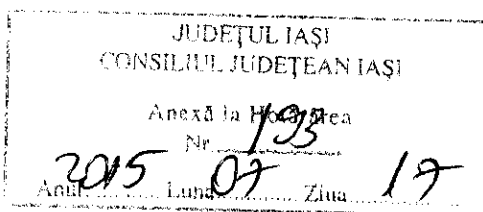 JUDEȚUL IAȘI
CONSILIUL JUDEȚEAN IAȘI
Anexă la Hotărârea
Nr. 193
Anul 2015 Luna 07 Ziua 17